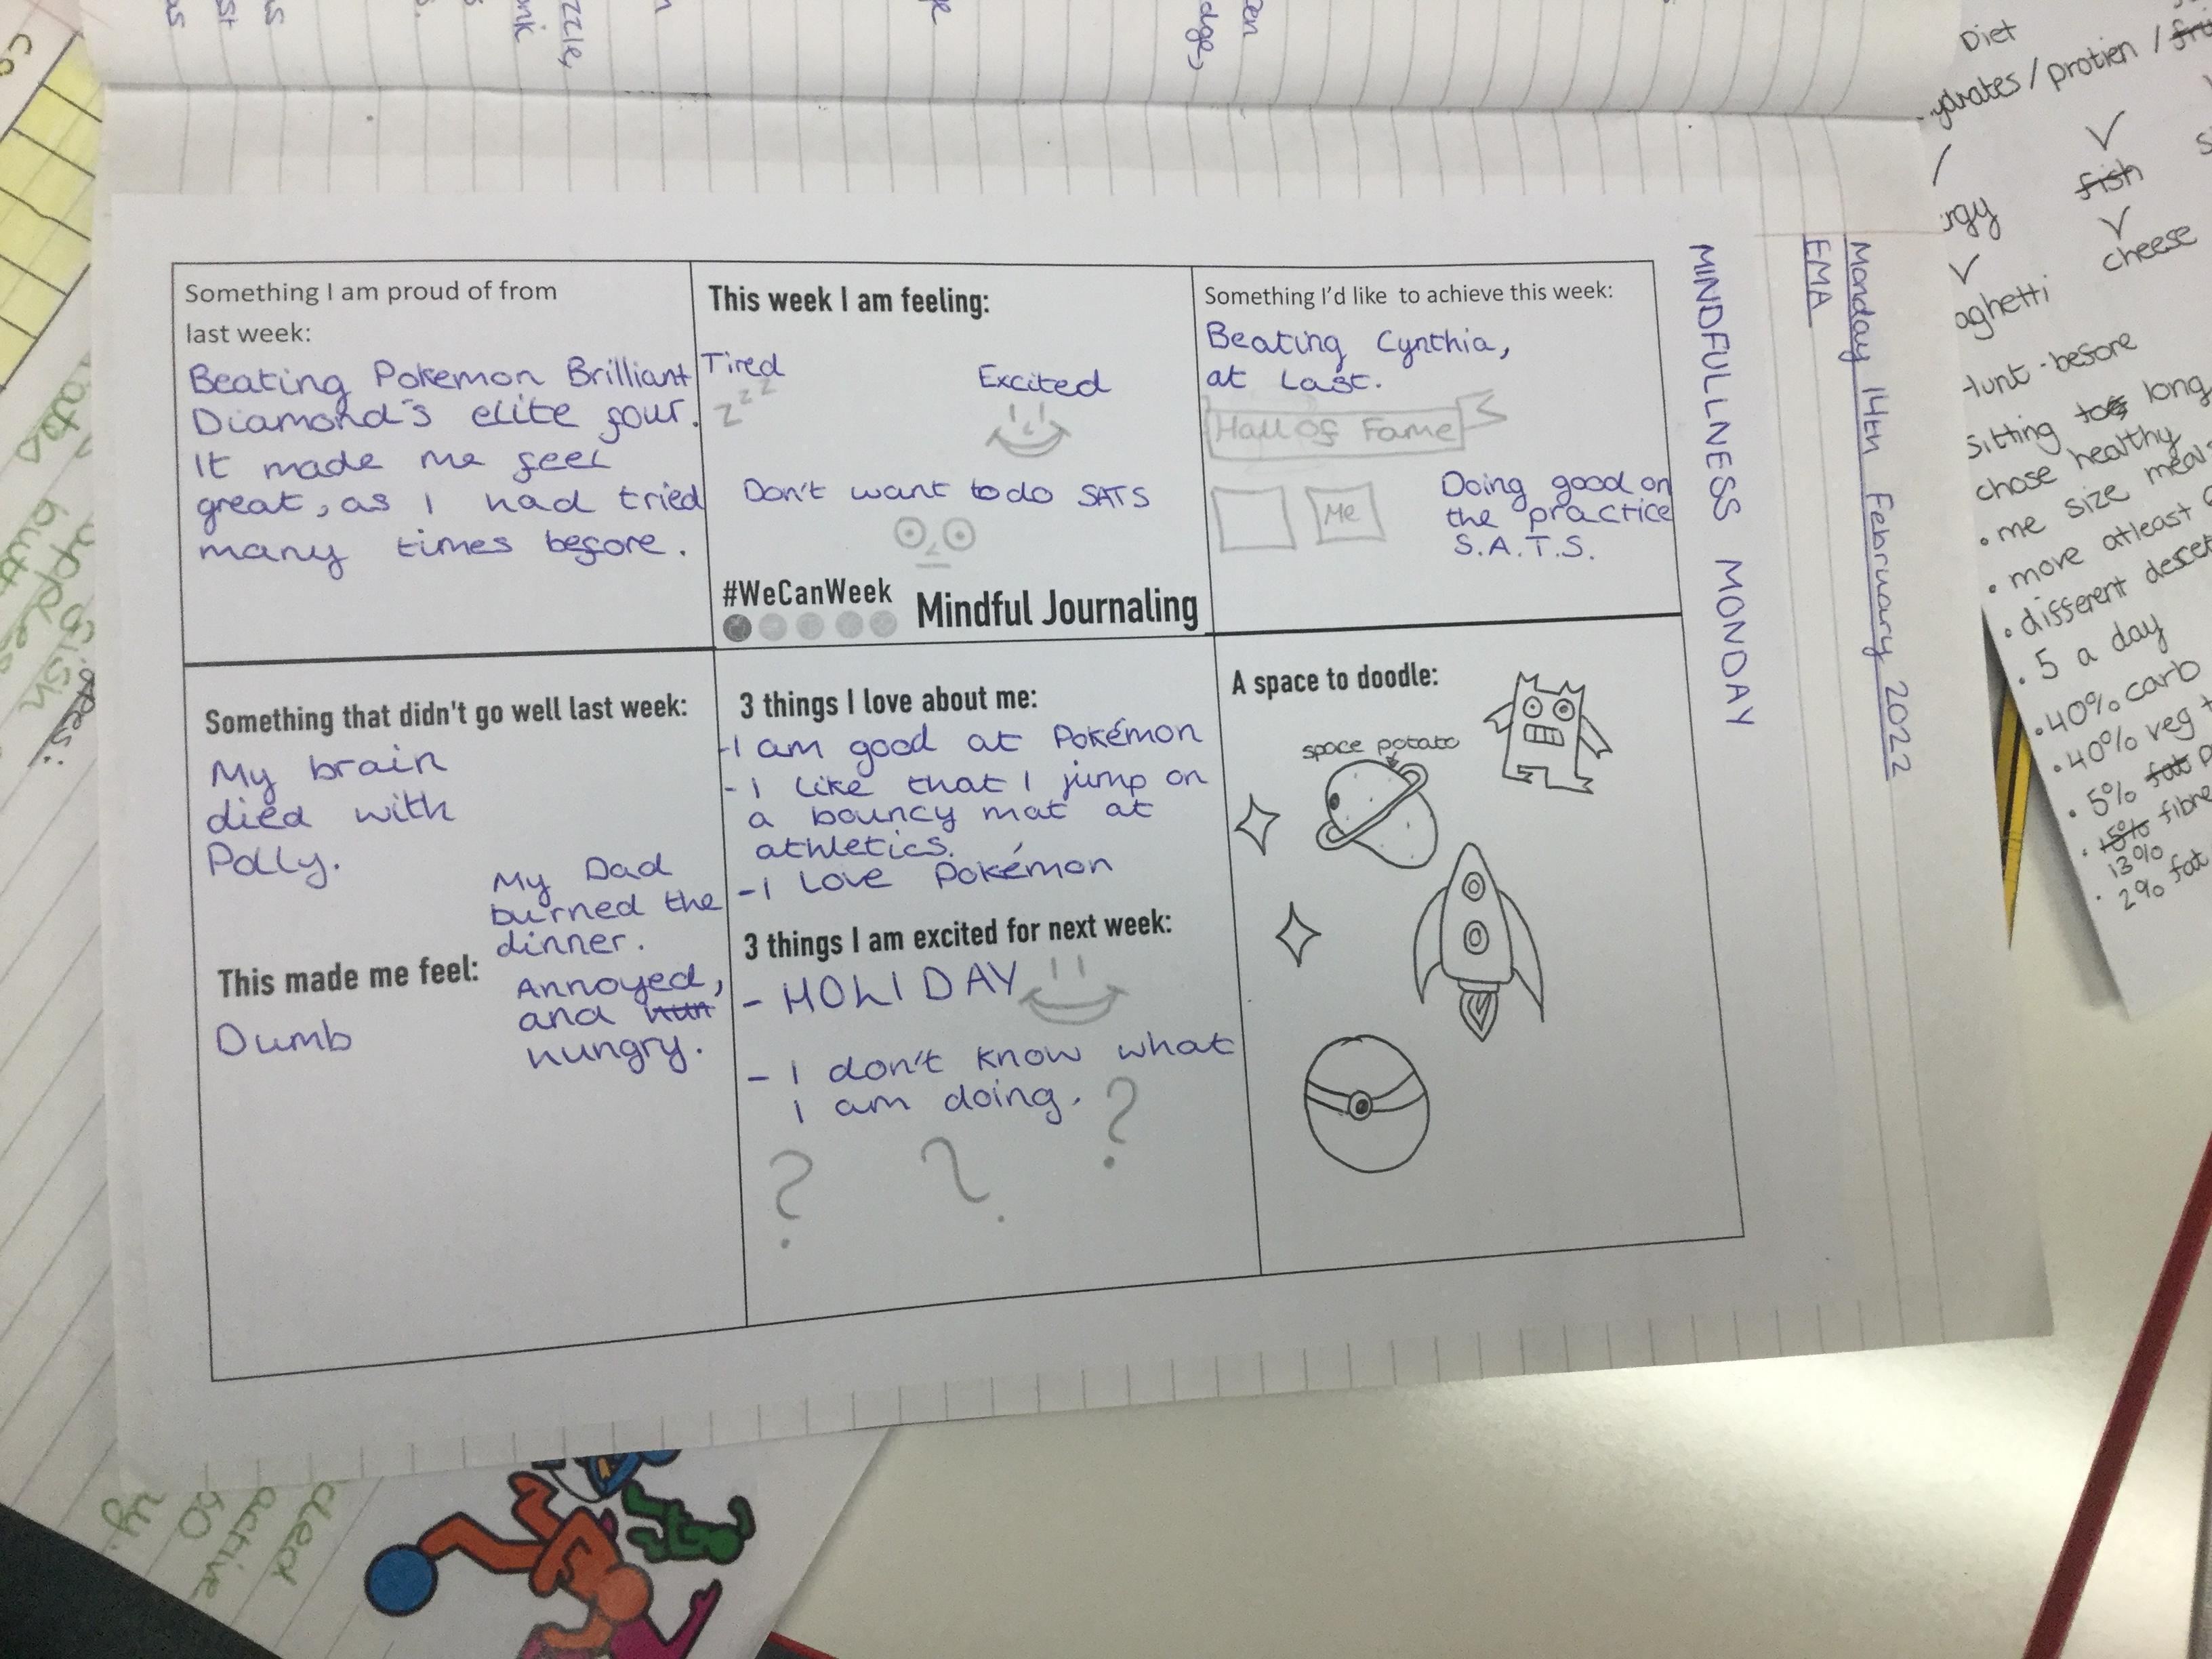 Monday 14th February 2022
EMA
MINDFULLNESS MONDAY
Something I am proud of from
last week:
Beating Pokemon Brilliant
Diamond's elite four.
It made me feel
great, as I had tried
many times before.
This week I am feeling:
Tired
zzz
Excited
Don't want to do SATS
#WeCanWeek
Mindful Journaling
Something I'd like to achieve this week:
Beating Cynthia,
at last.
Hall of Fame
Me
Doing good on
the practice
S.A.T.S.
Something that didn't go well last week:
My brain
died with
Polly.
My Dad
burned the
dinner.
This made me feel:
Dumb
Annoyed,
and hun
hungry.
3 things I love about me:
-I am good at Pokémon
- I like that I jump on
a bouncy mat at
athletics.
-I love Pokémon
3 things I am excited for next week:
- HOLIDAY
- I don't know what
I am doing.
? ? ?
A space to doodle:
space potato
Diet
ydrates / protien /
rgy
fish
cheese
aghetti
sitting too long
chose healthy
• me size meal
• more atleast
• different
• 5 a day
• 40% carb
• 40% veg
• 5% fat
• 15% fibre
13%
• 2% fat
zzle,
nk
dge,
active
so